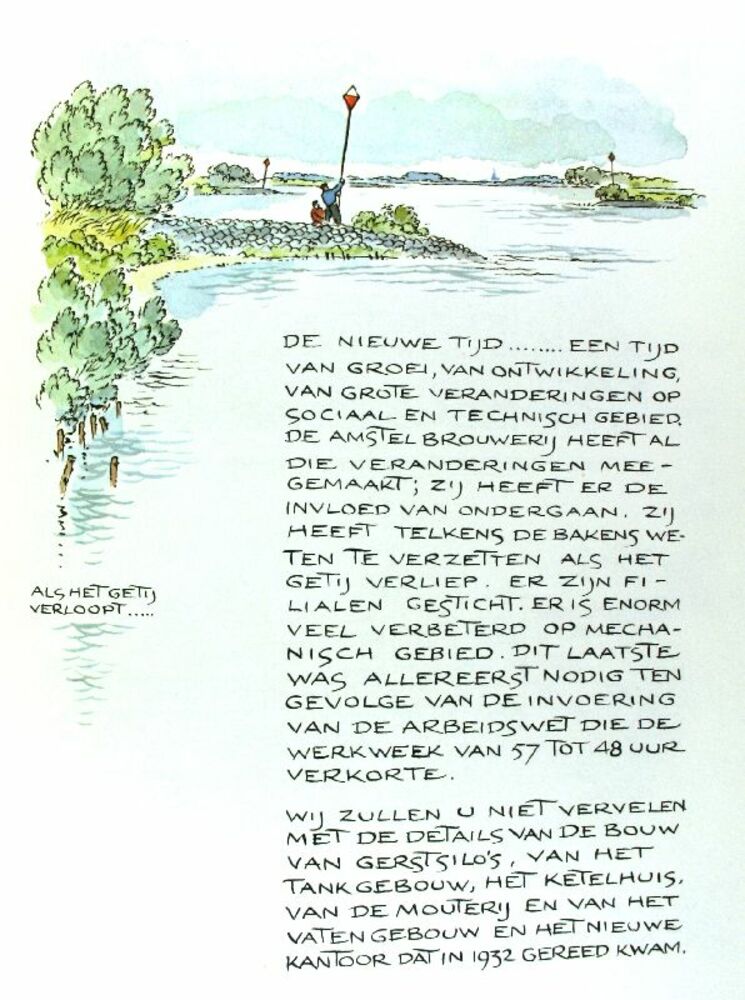 DE NIEUWE TIJD........ EEN TIJD
VAN GROEI, VAN ONTWIKKELING,
VAN GROTE VERANDERINGEN OP
SOCIAAL EN TECHNISCH GEBIED.
DE AMSTEL BROUWERIJ HEEFT AL
DIE VERANDERINGEN MEE-
GEMAAKT; ZIJ HEEFT ER DE
INVLOED VAN ONDERGAAN. ZIJ
HEEFT TELKENS DE BAKENS WE-
TEN TE VERZETTEN ALS HET
GETIJ VERLIEP. ER ZIJN FI-
LIALEN GESTICHT. ER IS ENORM
VEEL VERBETERD OP MECHA-
NISCH GEBIED. DIT LAATSTE
WAS ALLEREERST NODIG TEN
GEVOLGE VAN DE INVOERING
VAN DE ARBEIDSWET DIE DE
WERKWEEK VAN 57 TOT 48 UUR
VERKORTE.
WIJ ZULLEN U NIET VERVELEN
MET DE DETAILS VAN DE BOUW
VAN GERSTSILO'S, VAN HET
TANKGEBOUW, HET KETELHUIS,
VAN DE MOUTERIJ EN VAN HET
VATENGEBOUW EN HET NIEUWE
KANTOOR DAT IN 1932 GEREED KWAM.
ALS HET GETIJ
VERLOOPT.....